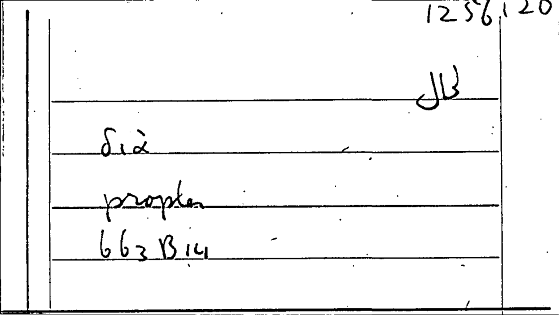 1256120
JB
διὰ
propter
663 B 14